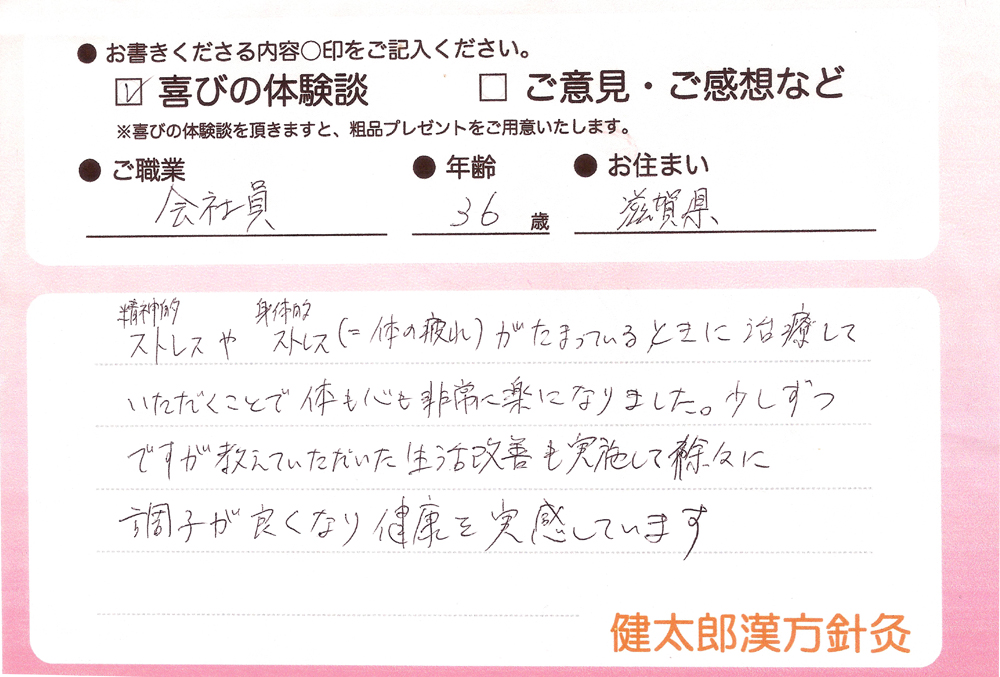 ● お書きくださる内容○印をご記入ください。
☑ 喜びの体験談 □ ご意見・ご感想など
※喜びの体験談を頂きますと、粗品プレゼントをご用意いたします。
● ご職業 ● 年齢 ● お住まい
会社員 36 歳 滋賀県
精神的 身体的
ストレスや ストレス(=体の疲れ)がたまっているときに治療して
いただくことで体も心も非常に楽になりました。少しずつ
ですが教えていただいた生活改善も実施して徐々に
調子が良くなり健康を実感しています
健太郎漢方針灸